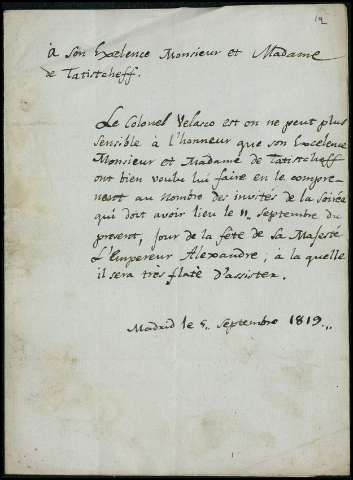 12
à son Excelence Monsieur et Madame
de Tatistcheff.
Le Colonel Velasco est on ne peut plus
sensible à l'honneur que son Excelence
Monsieur et Madame de Tatistcheff
ont bien voulu lui faire en le compre-
nent au nombre des invités de la soirée
qui doit avoir lieu le 11. septembre du
present, jour de la fête de Sa Majesté
L'Empereur Alexandre; à la quelle
il sera tres flaté D'assister.
Madrid le 5.. septembre 1819..